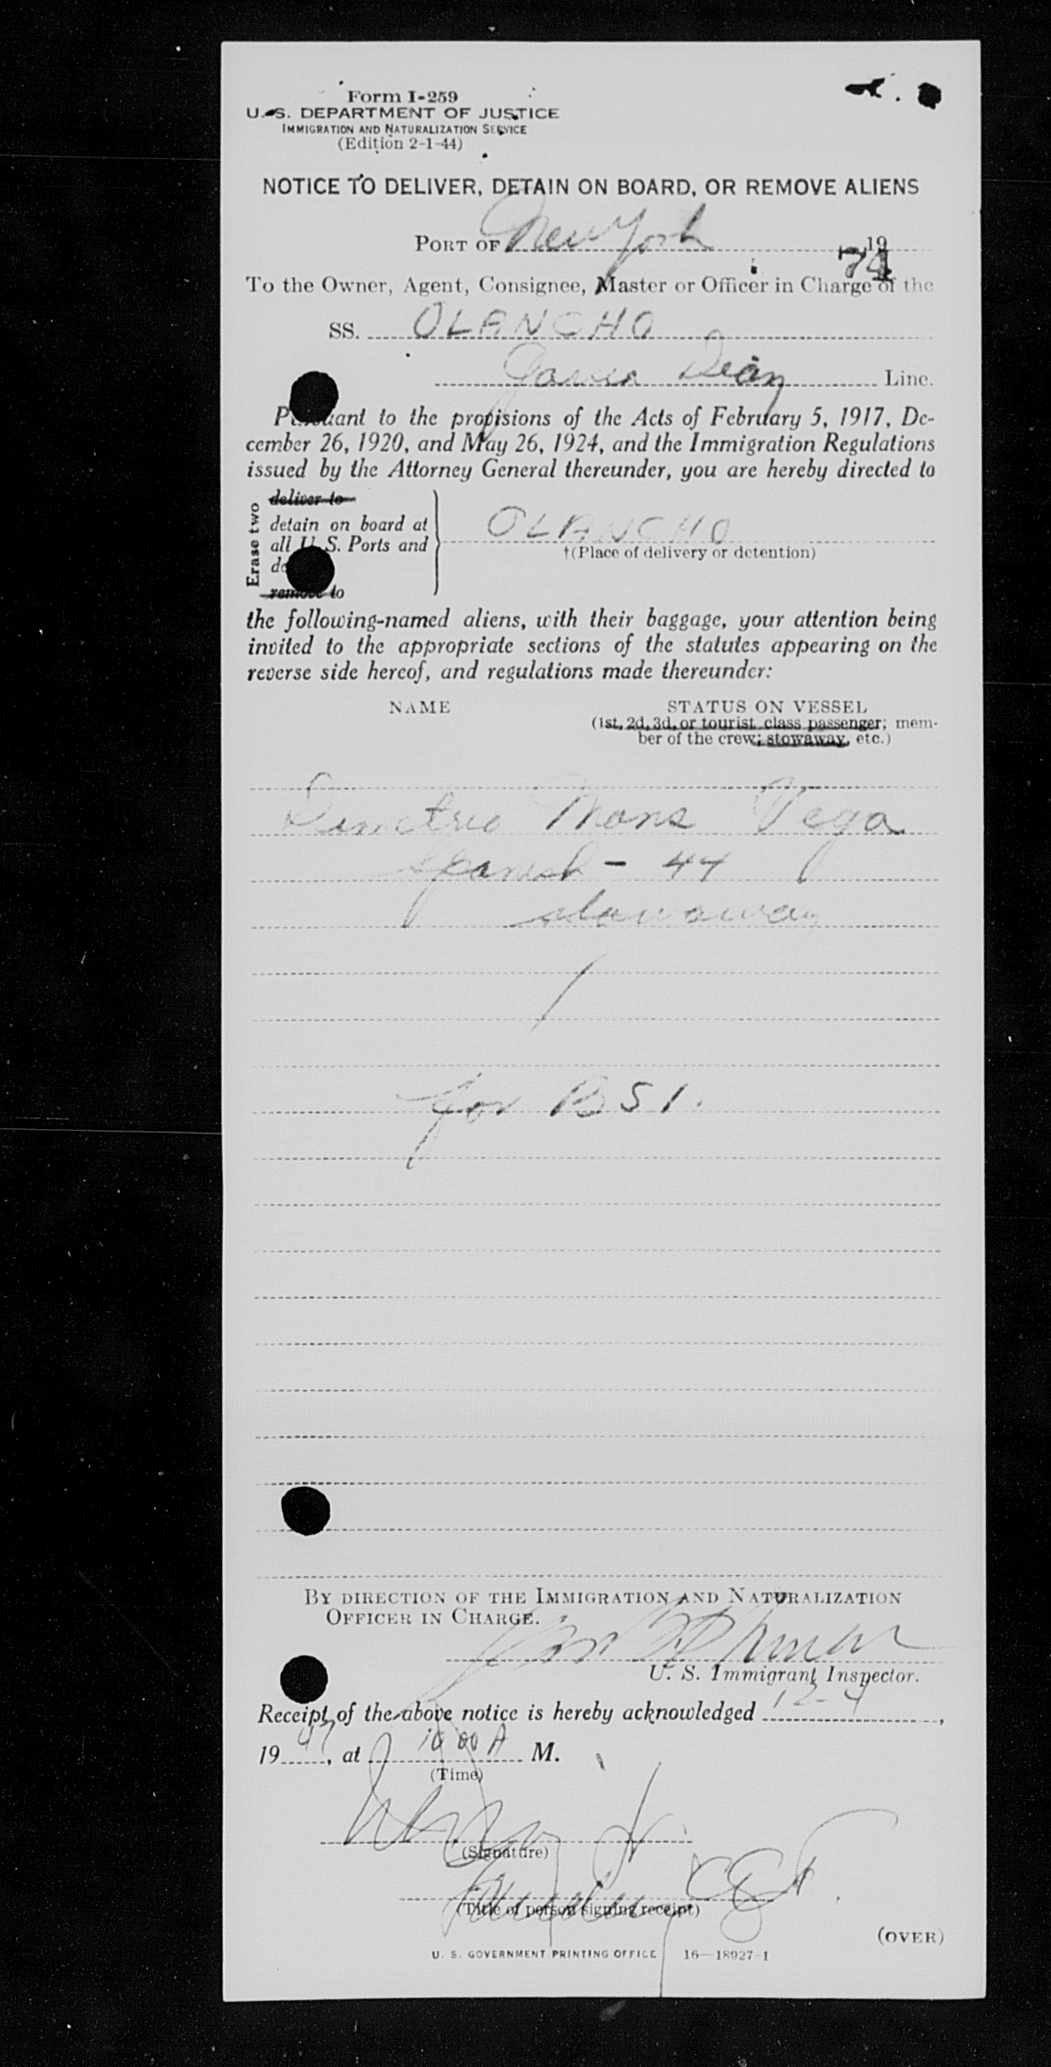 Form I-259
U. S. DEPARTMENT OF JUSTICE
IMMIGRATION AND NATURALIZATION SERVICE
(Edition 2-1-44)
NOTICE TO DELIVER, DETAIN ON BOARD, OR REMOVE ALIENS
PORT OF New York 19
74
To the Owner, Agent, Consignee, Master or Officer in Charge of the
SS. OLANCHO
Garcia Diaz Line.
Pursuant to the provisions of the Acts of February 5, 1917, De-
cember 26, 1920, and May 26, 1924, and the Immigration Regulations
issued by the Attorney General thereunder, you are hereby directed to
Erase two
deliver to
detain on board at
all U. S. Ports and
remove to
OLANCHO
†(Place of delivery or detention)
the following-named aliens, with their baggage, your attention being
invited to the appropriate sections of the statutes appearing on the
reverse side hereof, and regulations made thereunder:
NAME STATUS ON VESSEL
(1st, 2d, 3d, or tourist class passenger; mem-
ber of the crew; stowaway, etc.)
Demetrio Mons Vega
Spanish - 44
stowaway
/
for BSI.
BY DIRECTION OF THE IMMIGRATION AND NATURALIZATION
OFFICER IN CHARGE.
U. S. Immigrant Inspector.
Receipt of the above notice is hereby acknowledged 12-4,
19 47, at 10 00 A M.
(Time)
(Signature)
(Title of person signing receipt)
(OVER)
U. S. GOVERNMENT PRINTING OFFICE 16—18927-1